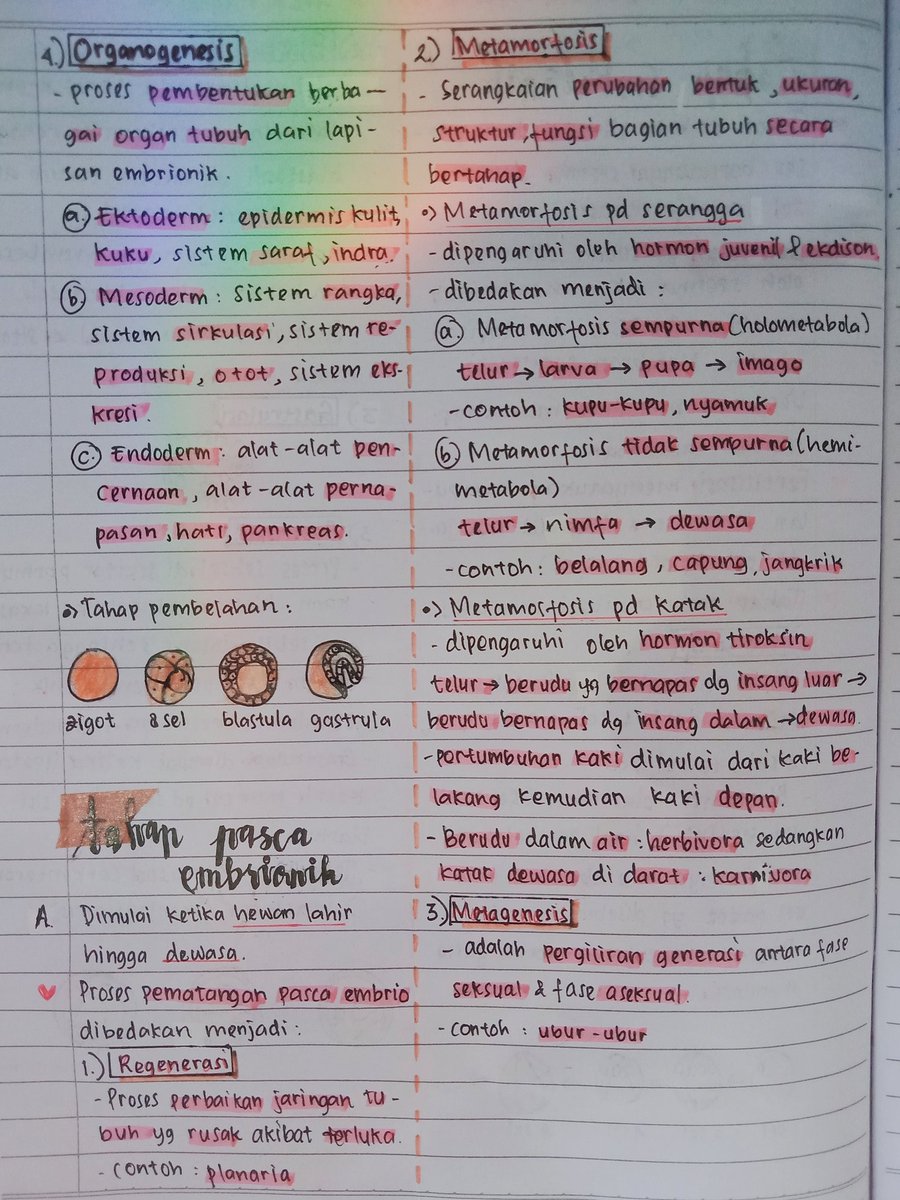 4.) Organogenesis
- proses pembentukan berba-
gai organ tubuh dari lapi-
san embrionik.
a. Ektoderm : epidermis kulit,
kuku, sistem saraf, indra.
b Mesoderm : sistem rangka,
sistem sirkulasi, sistem re-
produksi, otot, sistem eks-
kresi.
c. Endoderm : alat-alat pen-
cernaan, alat-alat perna-
pasan, hati, pankreas.
Tahap pembelahan :
zigot 8 sel blastula gastrula
tahap pasca
embrionik
A. Dimulai ketika hewan lahir
hingga dewasa.
♥ Proses pematangan pasca embrio
dibedakan menjadi :
1.) Regenerasi
- Proses perbaikan jaringan tu-
buh yg rusak akibat terluka.
- contoh : planaria
2.) Metamorfosis
- Serangkaian perubahan bentuk, ukuran,
struktur, fungsi bagian tubuh secara
bertahap.
Metamorfosis pd serangga
- dipengaruhi oleh hormon juvenil & ekdison
- dibedakan menjadi :
a. Metamorfosis sempurna (holometabola)
telur → larva → pupa → imago
- contoh : kupu-kupu, nyamuk
b Metamorfosis tidak sempurna (hemi-
metabola)
telur → nimfa → dewasa
- contoh : belalang, capung, jangkrik
Metamorfosis pd katak
- dipengaruhi oleh hormon tiroksin
telur → berudu yg bernapas dg insang luar →
berudu bernapas dg insang dalam → dewasa.
- portumbuhan kaki dimulai dari kaki be-
lakang kemudian kaki depan.
- Berudu dalam air : herbivora sedangkan
katak dewasa di darat : karnivora
3.) Metagenesis
- adalah pergiliran generasi antara fase
seksual & fase aseksual.
- contoh : ubur-ubur